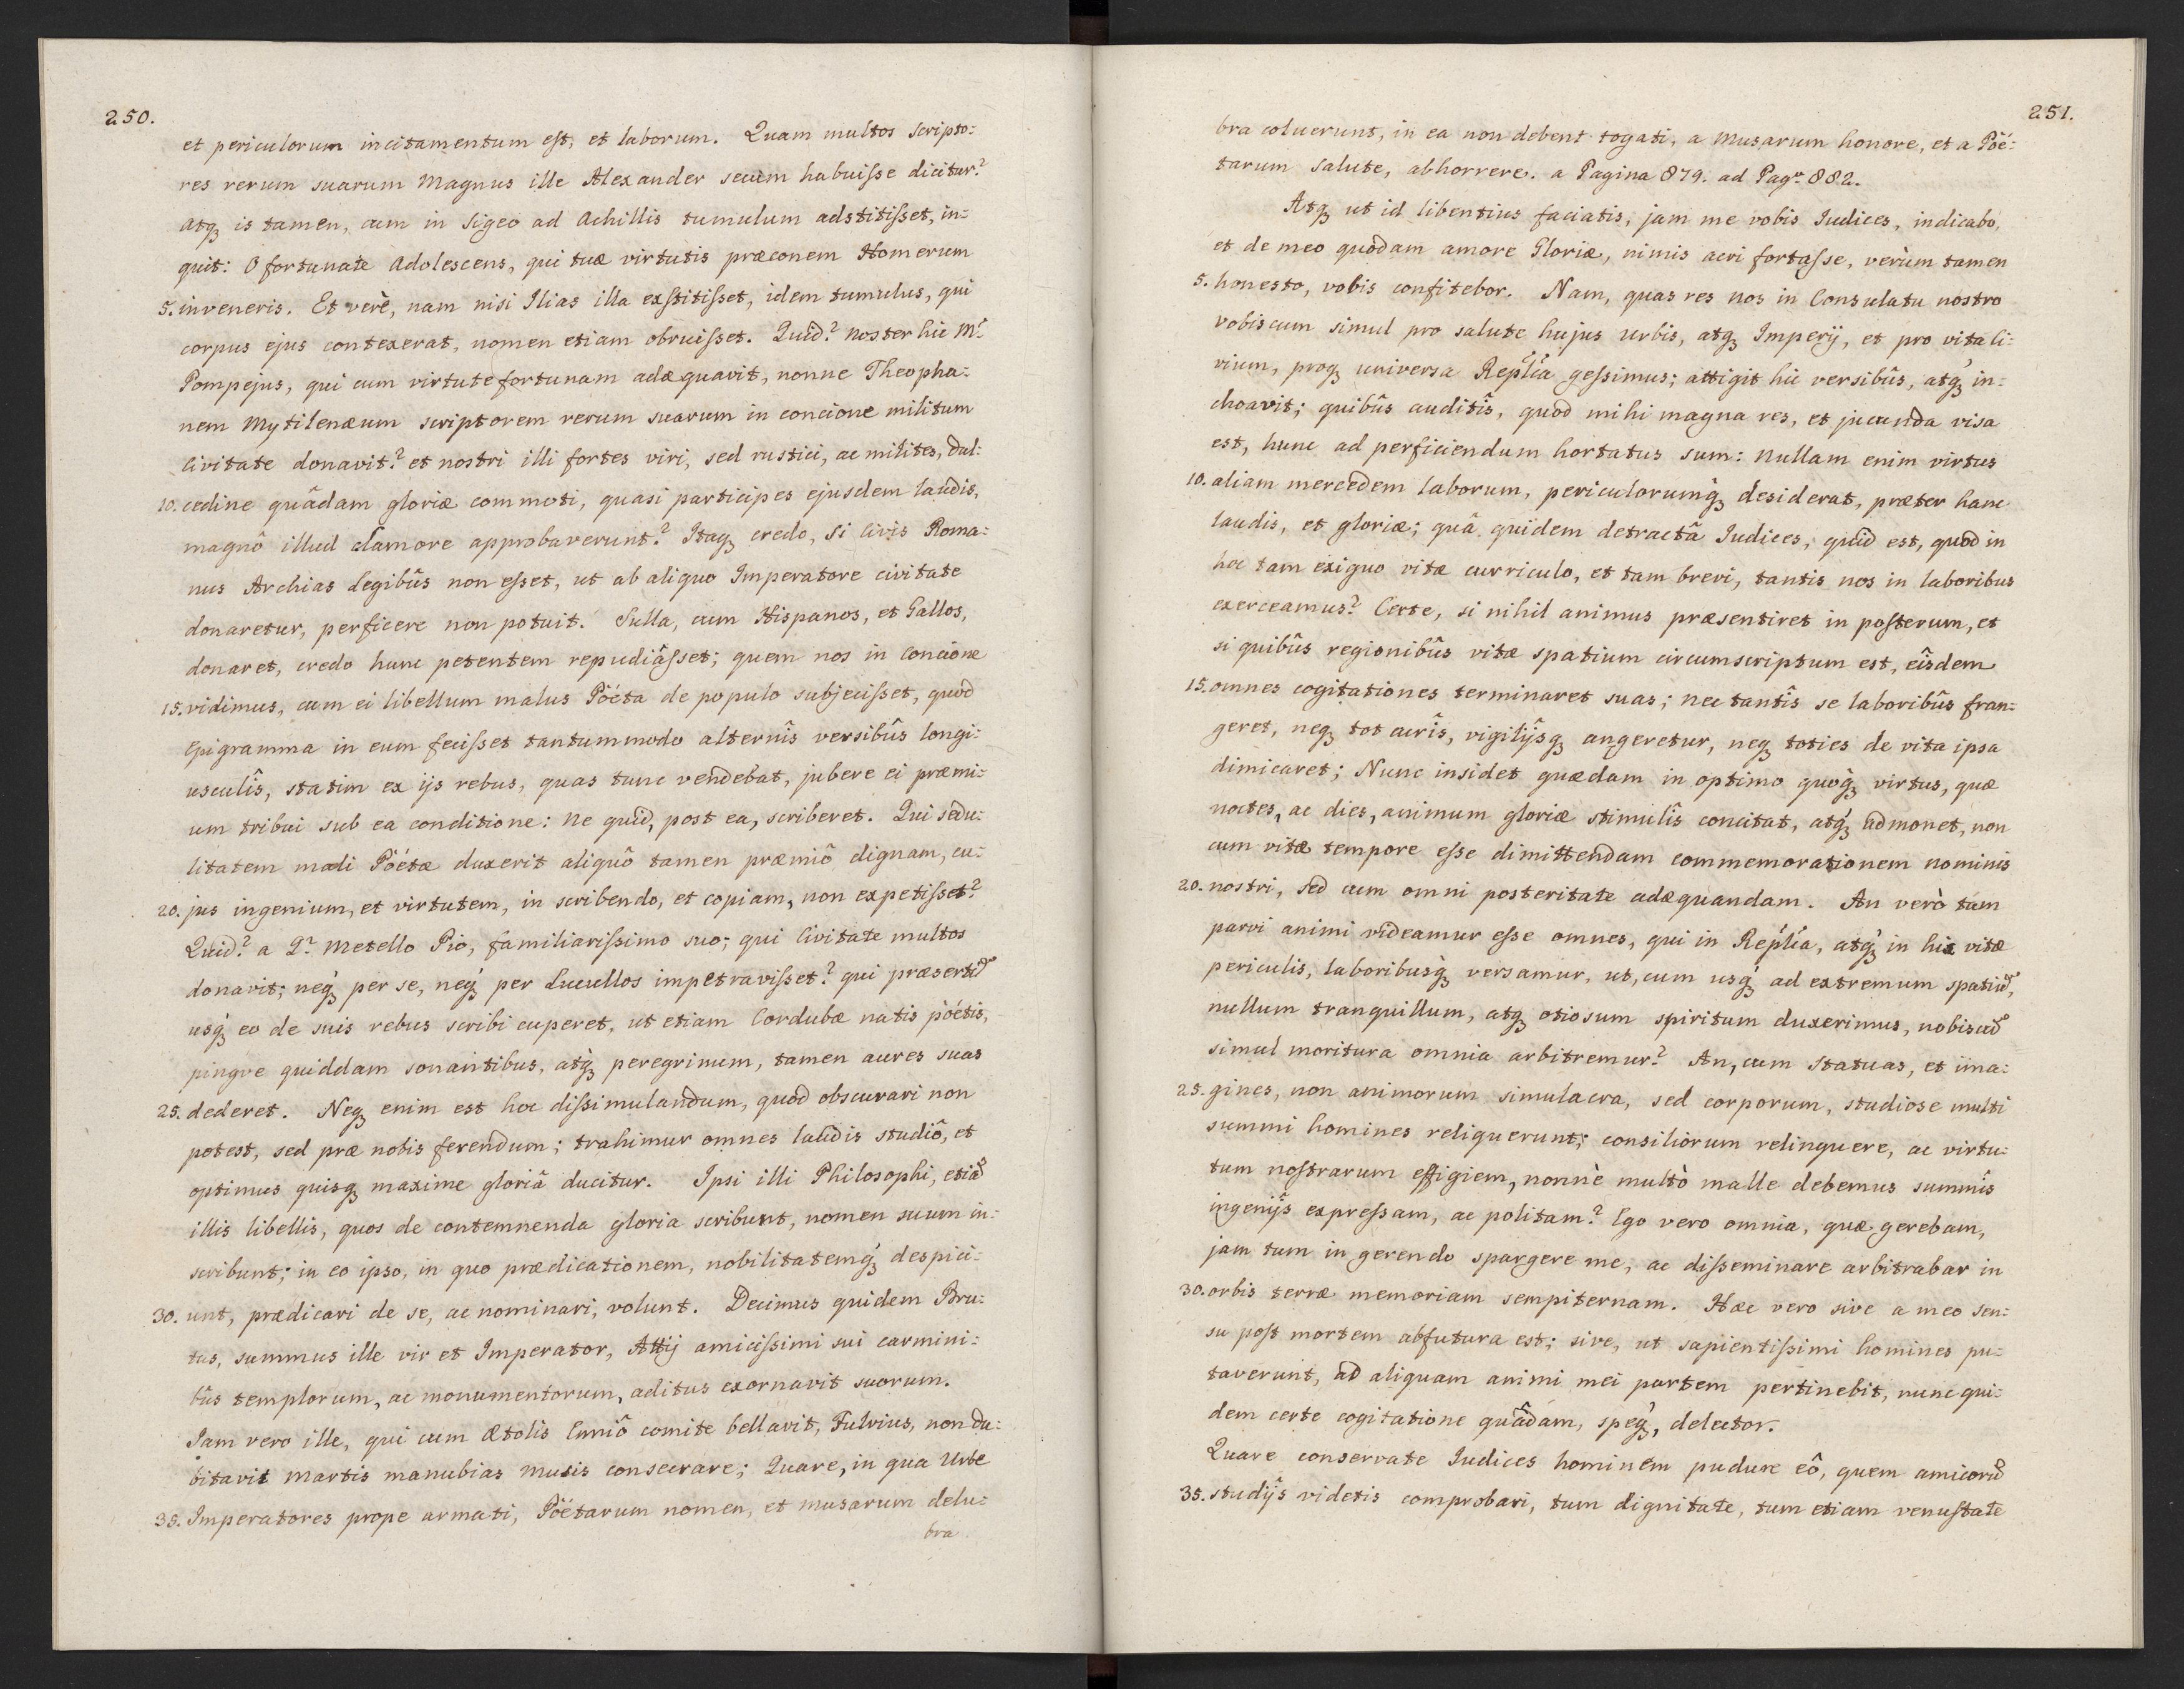 250.
et periculorum incitamentum est, et laborum. Quam multos scripto:
res rerum suarum Magnus ille Alexander secum habuisse dicitur?
atq3 is tamen, cum in Sigeo ad Achillis tumulum adstitisset, in:
quit: O fortunate Adolescens, qui tuæ virtutis præconem Homerum
5. inveneris. Et verè, nam nisi Ilias illa exstitisset, idem tumulus, qui
corpus ejus contexerat, nomen etiam obruisset. Quid? noster hic Mr.
Pompejus, qui cum virtute fortunam adæquavit, nonne Theopha:
nem Mytilenæum scriptorem rerum suarum in concione militum
Civitate donavit? et nostri illi fortes viri, sed rustici, ac milites, dul:
10. cedine quâdam gloriæ commoti, quasi participes ejusdem laudis,
magnô illud clamore approbaverunt? Itaq3 credo, si Civis Roma:
nus Archias Legibûs non esset, ut ab aliquo Imperatore civitate
donaretur, perficere non potuit. Sulla, cum Hispanos, et Gallos,
donaret, credo hunc petentem repudiâsset; quem nos in Concione
15. vidimus, cum ei libellum malus Pöéta de populo subjecisset, quod
Epigramma in eum fecisset tantummodo alternîs versibûs longi:
usculîs, statim ex ijs rebus, quas tunc vendebat, jubere ei præmi:
um tribui sub ea conditione: ne quid, post ea, scriberet. Qui sedu:
litatem mali Pöétæ duxerit aliquô tamen præmiô dignam, cu:
20. jus ingenium, et virtutem, in scribendo, et copiam, non expetisset?
Quid? a Qr. Metello Pio, familiarissimo suo; qui Civitate multos
donavit; neq3 per se, neq3 per Lucullos impetravisset? qui præsertim
usq3 eo de suis rebus scribi cuperet, ut etiam Cordubæ natis pöétis,
pingve quiddam sonantibus, atq3 peregrinum, tamen aures suas
25. dederet. Neq3 enim est hoc dissimulandum, quod obscurari non
potest, sed præ nobis ferendum; trahimur omnes laudis studiô, et
optimus quisq3 maxime gloriâ ducitur. Ipsi illi Philosophi, etiam
illis libellis, quos de contemnenda gloria scribunt, nomen suum in:
scribunt; in eo ipso, in quo prædicationem, nobilitatemq3 despici:
30. unt, prædicari de se, ac nominari, volunt. Decimus quidem Bru:
tus, summus ille vir et Imperator, Attij amicissimi sui carmini:
bûs templorum, ac monumentorum, aditus exornavit suorum.
Jam vero ille, qui cum Ætolis Enniô comite bellavit, Fulvius, non du:
bitavit Martis manubias Musis consecrare; Quare, in qua Urbe
35. Imperatores prope armati, Pöétarum nomen, et Musarum delu:
bra
251.
bra coluerunt, in ea non debent togati, a Musarum honore, et a Pöé:
tarum salute, abhorrere. a Pagina 879. ad Pagm 882.
Atq3 ut id libentius faciatis, jam me vobis Iudices, indicabo,
et de meo quodam amore Gloriæ, nimis acri fortasse, verùm tamen
5. honesto, vobis confitebor. Nam, quas res nos in Consulatu nostro
vobiscum simul pro salute hujus urbis, atq3 Imperij, et pro vita Ci:
vium, proq3 universa Replica gessimus; attigit hic versibûs, atq3 in:
choavit; quibûs auditîs, quod mihi magna res, et jucunda visa
est, hunc ad perficiendum hortatus sum: Nullam enim virtus
10. aliam mercedem laborum, periculorumq3 desiderat, præter hanc
laudis, et gloriæ; quâ quidem detractâ Iudices, quid est, quod in
hoc tam exiguo vitæ curriculo, et tam brevi, tantis nos in laboribus
exerceamus? Certe, si nihil animus præsentiret in posterum, et
si quibûs regionibûs vitæ spatium circumscriptum est, eîsdem
15. omnes cogitationes terminaret suas; nec tantîs se laboribûs fran:
geret, neq3 tot curîs, vigilijsq3 angeretur, neq3 toties de vita ipsa
dimicaret; Nunc insidet quædam in optimo quoq3 virtus, quæ
noctes, ac dies, animum gloriæ stimulîs concitat, atq3 admonet, non
cum vitæ tempore esse dimittendam commemorationem nominis
20. nostri, sed cum omni posteritate adæquandam. An verò tam
parvi animi videamur esse omnes, qui in Replica, atq3 in his vitæ
periculis, laboribusq3 versamur, ut, cum usq3 ad extremum spatium,
nullum tranquillum, atq3 otiosum spiritum duxerimus, nobiscum
simul moritura omnia arbitremur? An, cum statuas, et ima:
25. gines, non animorum simulacra, sed corporum, studiose multi
summi homines reliquerunt; consiliorum relinquere, ac virtu:
tum nostrarum effigiem, nonnè multò malle debemus summîs
ingenijs expressam, ac politam? Ego vero omnia, quæ gerebam,
jam tum in gerendo spargere me, ac disseminare arbitrabar in
30. orbis terræ memoriam sempiternam. Hæc vero sive a meo sen:
su post mortem abfutura est; sive, ut sapientissimi homines pu:
taverunt, ad aliquam animi mei partem pertinebit, nunc qui:
dem certe cogitatione quâdam, speq3, delector.
Quare conservate Iudices hominem pudore eô, quem amicorum
35. studijs videtis comprobari, tum dignitate, tum etiam venustate